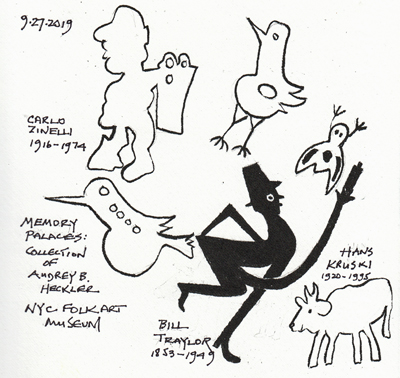 9.27.2019
CARLO
ZINELLI
1916-1974
MEMORY
PALACES:
COLLECTION
OF
AUDREY B.
HECKLER
NYC FOLK ART
MUSEUM
BILL
TRAYLOR
1853-1949
HANS
KRUSKI
1920-1995